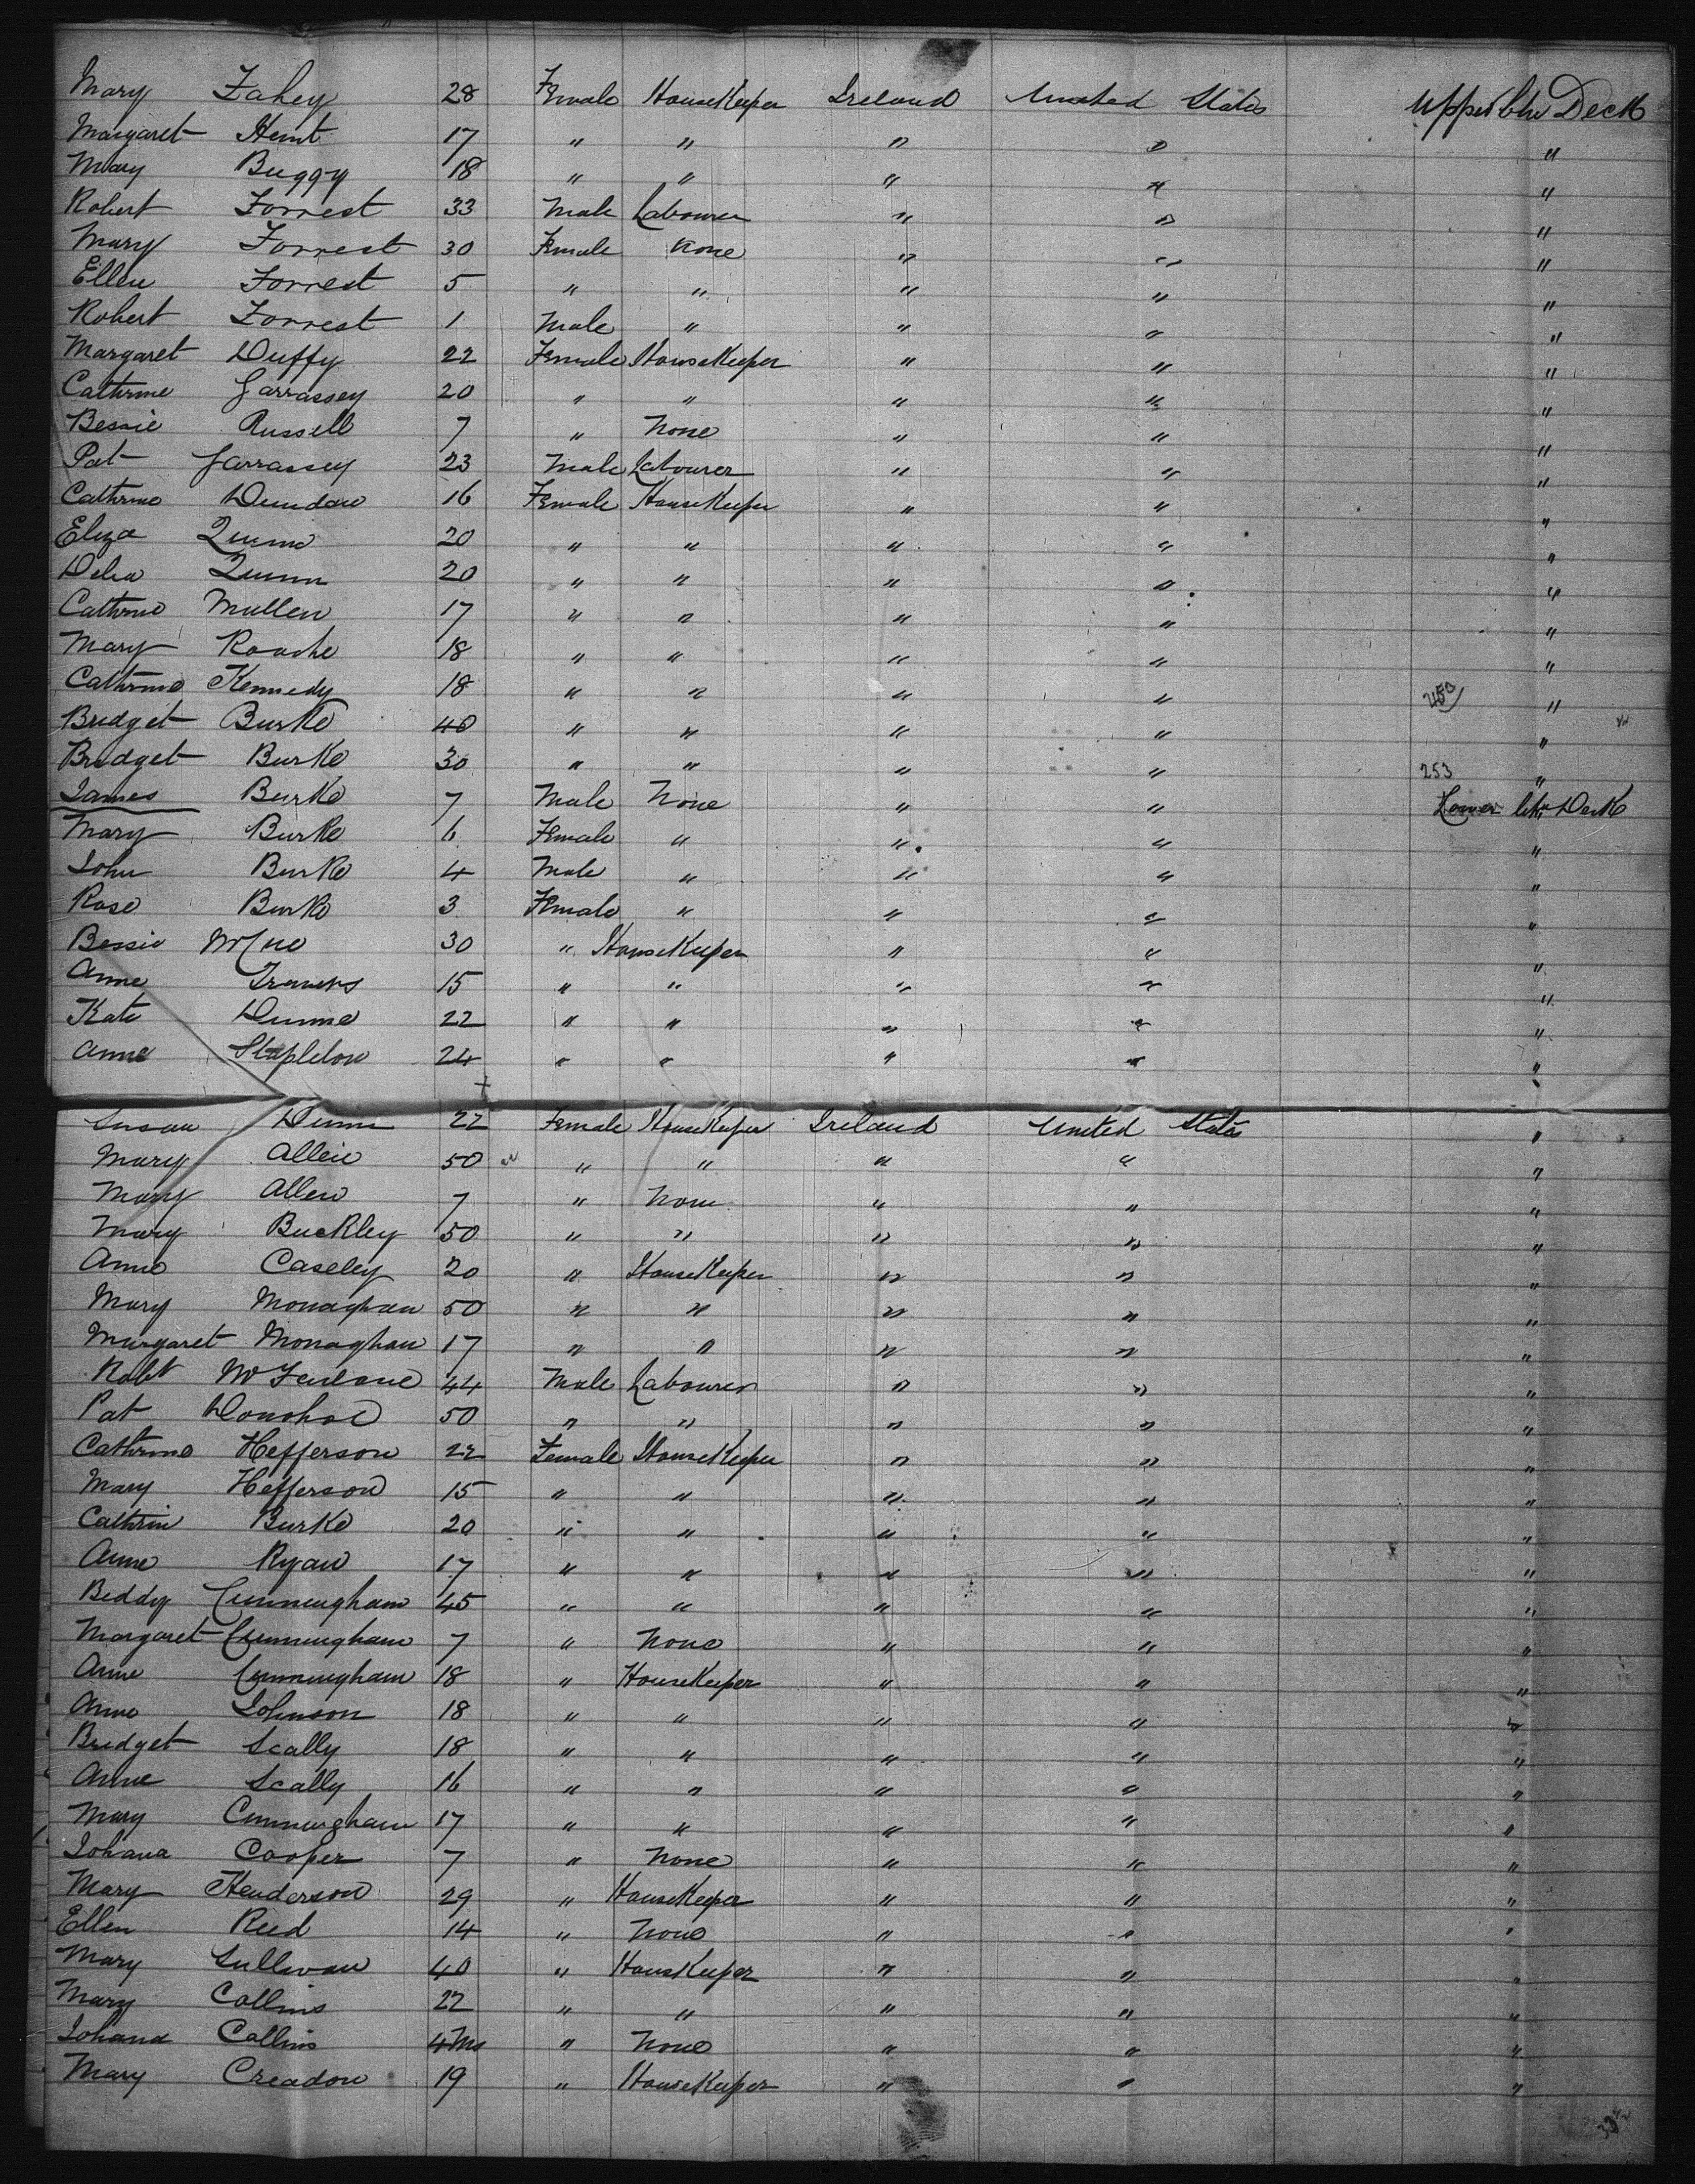 Mary Fahey 28 Female HouseKeeper Ireland United States Upper btw Deck
Margaret Hunt 17 " " " " "
Mary Buggy 18 " " " " "
Robert Forrest 33 Male Labourer " " "
Mary Forrest 30 Female None " " "
Ellen Forrest 5 " " " " "
Robert Forrest 1 Male " " " "
Margaret Duffy 22 Female HouseKeeper " " "
Cathrine Garrassey 20 " " " " "
Bessie Russell 7 " None " " "
Pat Garrassey 23 Male Labourer " " "
Cathrine 16 Female HouseKeeper " " "
Eliza Quinn 20 " " " " "
Delia Quinn 20 " " " " "
Cathrine Mullen 17 " " " " "
Mary Roache 18 " " " " "
Cathrine Kennedy 18 " " " " 253 "
Bridget Burke 40 " " " " "
Bridget Burke 30 " " " " 253 "
James Burke 7 Male None " " Lower btw Deck
Mary Burke 6 Female " " " "
John Burke 4 Male " " " "
Rose Burke 3 Female " " " "
Bessie 30 " HouseKeeper " " "
Anne Travers 15 " " " " "
Kate Dunne 22 " " " " "
Anne Stapleton 24 " " " " "
Susan Dunn 22 Female HouseKeeper Ireland United States "
Mary Allen 50 " " " " "
Mary Allen 7 " None " " "
Mary Buckley 50 " " " " "
Anne Caseley 20 " HouseKeeper " " "
Mary Monaghan 50 " " " " "
Margaret Monaghan 17 " " " " "
Robt McFarlane 44 Male Labourer " " "
Pat Donohoe 50 " " " " "
Cathrine Hefferson 22 Female HouseKeeper " " "
Mary Hefferson 15 " " " " "
Cathrin Burke 20 " " " " "
Anne Ryan 17 " " " " "
Biddy Cunningham 45 " " " " "
Margaret Cunningham 7 " None " " "
Anne Cunningham 18 " HouseKeeper " " "
Anne Johnson 18 " " " " "
Bridget Scally 18 " " " " "
Anne Scally 16 " " " " "
Mary Cunningham 17 " " " " "
Johana Cooper 7 " None " " "
Mary Henderson 29 " HouseKeeper " " "
Ellen Reed 14 " None " " "
Mary Sullivan 40 " HouseKeeper " " "
Mary Collins 22 " " " " "
Johana Collins 4 Ms " None " " "
Mary Creadon 19 " HouseKeeper " " "